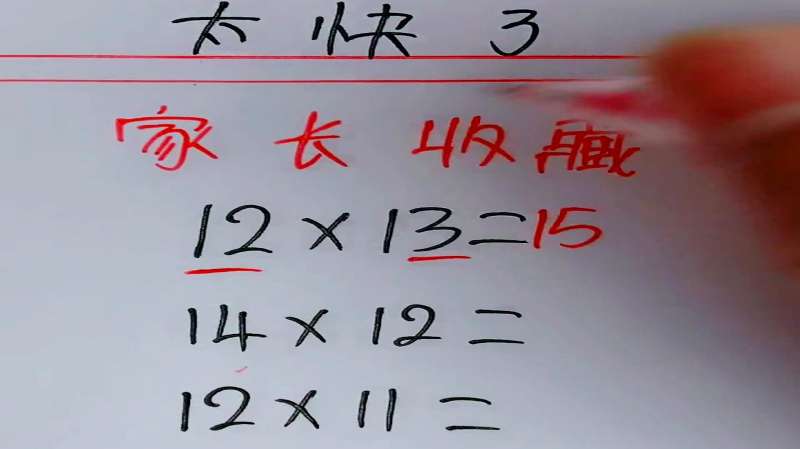 太快了
家长收藏
12×13=15
14×12=
12×11=